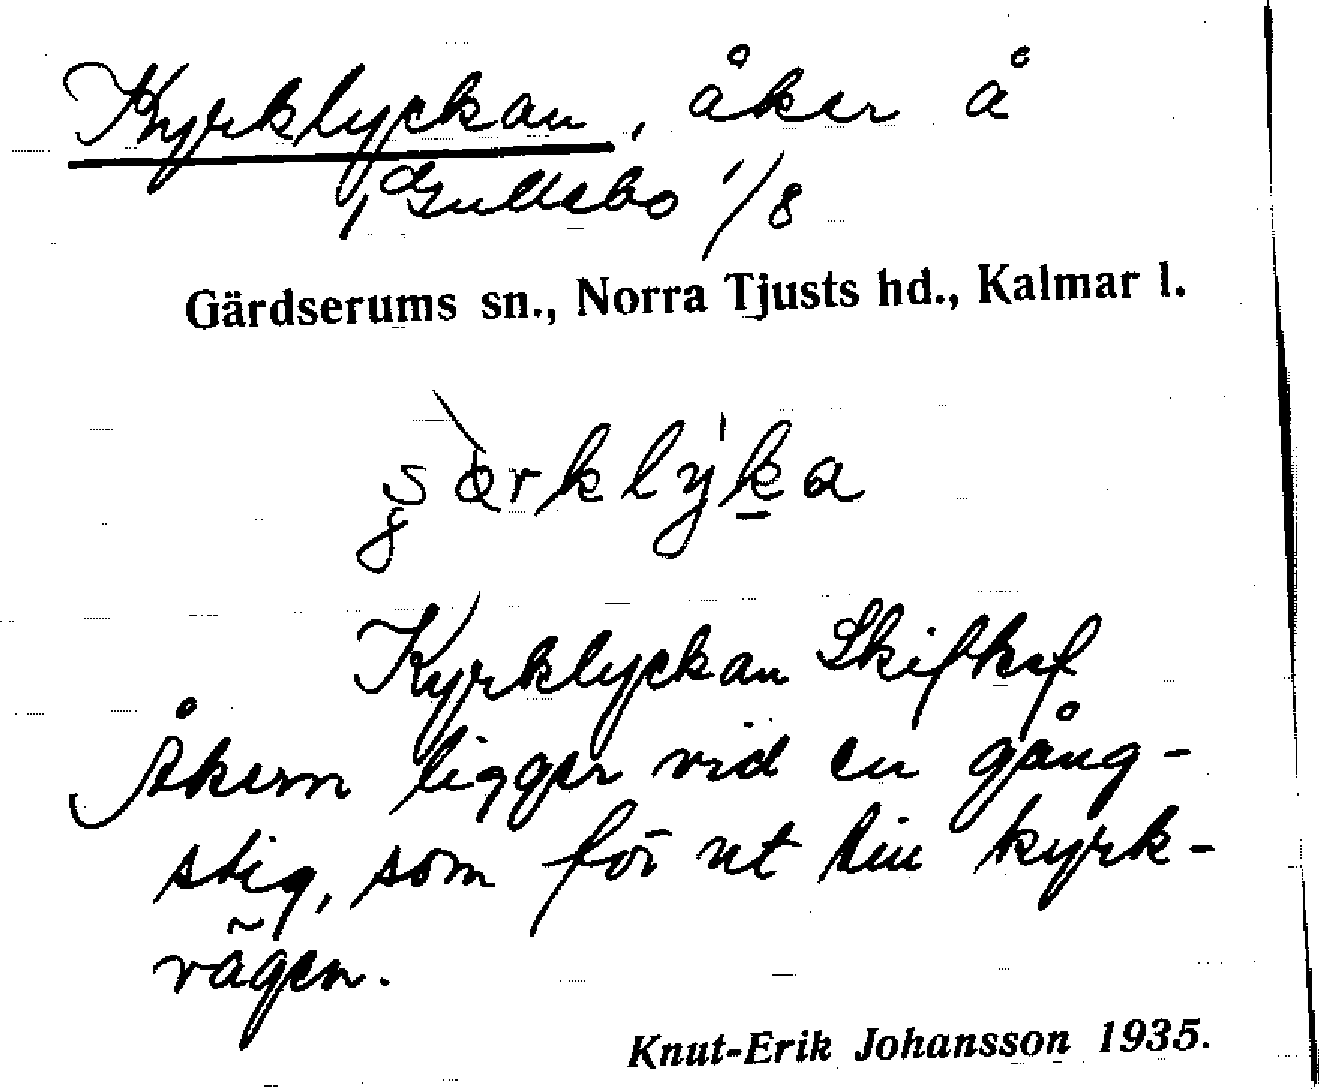 Kyrklyckan, åker å
Gullebo 1/8
Gärdserums sn., Norra Tjusts hd., Kalmar l.
Kyrklyckan Skifkf
Åkern ligger vid en gång-
stig, som för ut till kyrk-
vägen.
Knut-Erik Johansson 1935.